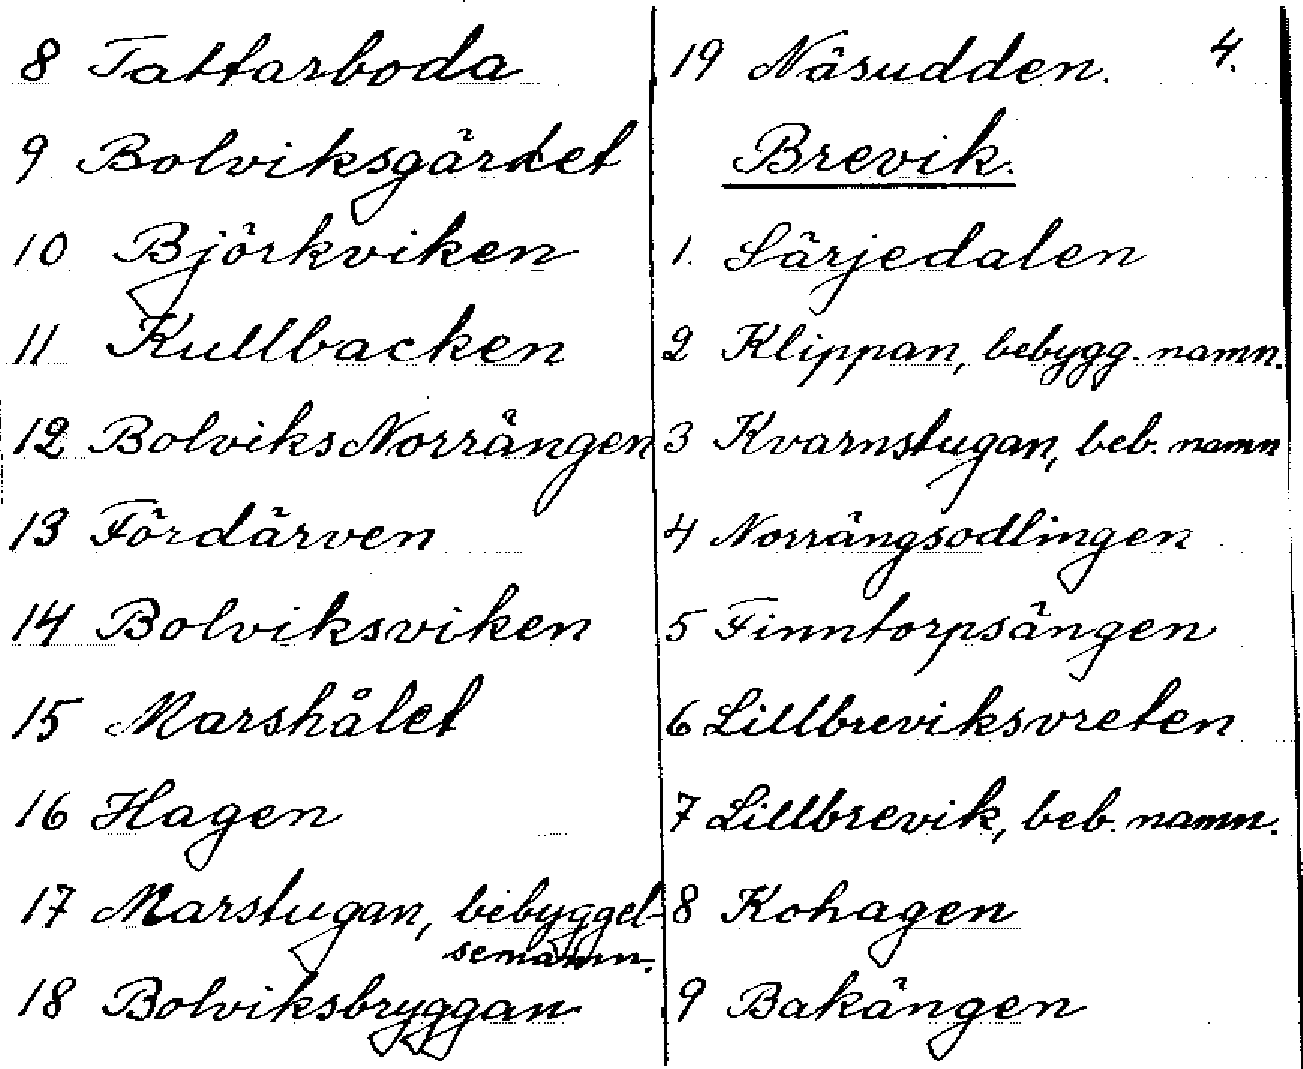 8 Tattarboda
9 Bolviksgärdet
10 Björkviken
11 Kullbacken
12 Bolviks Norrängen
13 Fördärven
14 Bolviksviken
15 Marshålet
16 Hagen
17 Marstugan, bebyggel-
senamn.
18 Bolviksbryggan
4.
19 Näsudden.
Brevik.
1. Särjedalen
2 Klippan, bebygg. namn.
3 Kvarnstugan, beb. namn
4 Norrängsodlingen
5 Finntorpsängen
6 Lillbreviksvreten
7 Lillbrevik, beb. namn.
8 Kohagen
9 Bakängen